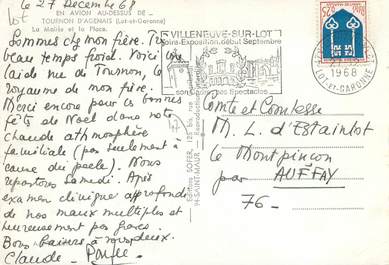 le 27 Décembre 68
Lot
EN AVION AU-DESSUS DE ...
TOURNON D'AGENAIS (Lot-et-Garonne)
La Mairie et la Place.
Sommes chez mon frère. Très
beau temps froid. Voici une
laide vue de Tournon, le
royaume de mon frère.
Merci encore pour ces bonnes
fêtes de Noël dans votre
chaude athmosphère
familiale (pas seulement à
cause du poele). Nous
repartons Samedi. Après
examen clinique approfondi
de nos maux multiples et
heureusement pas graves.
Bons baisers à vous deux.
Claude -
Editions SOFER, 125 bis, rue
94-SAINT-MAUR
VILLENEUVE-SUR-LOT
Foire-Exposition début Septembre
son Spectacles
1968
LOT-ET-GARONNE
Comte et Comtesse
M. L. d'Estaintot
le Montpinçon
par AUFFAY
76-